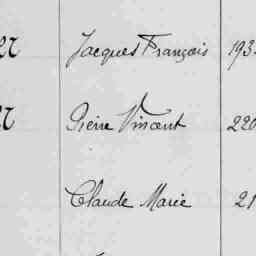 Jacques François 193
Pierre Vincent 220
Claude Marie 21